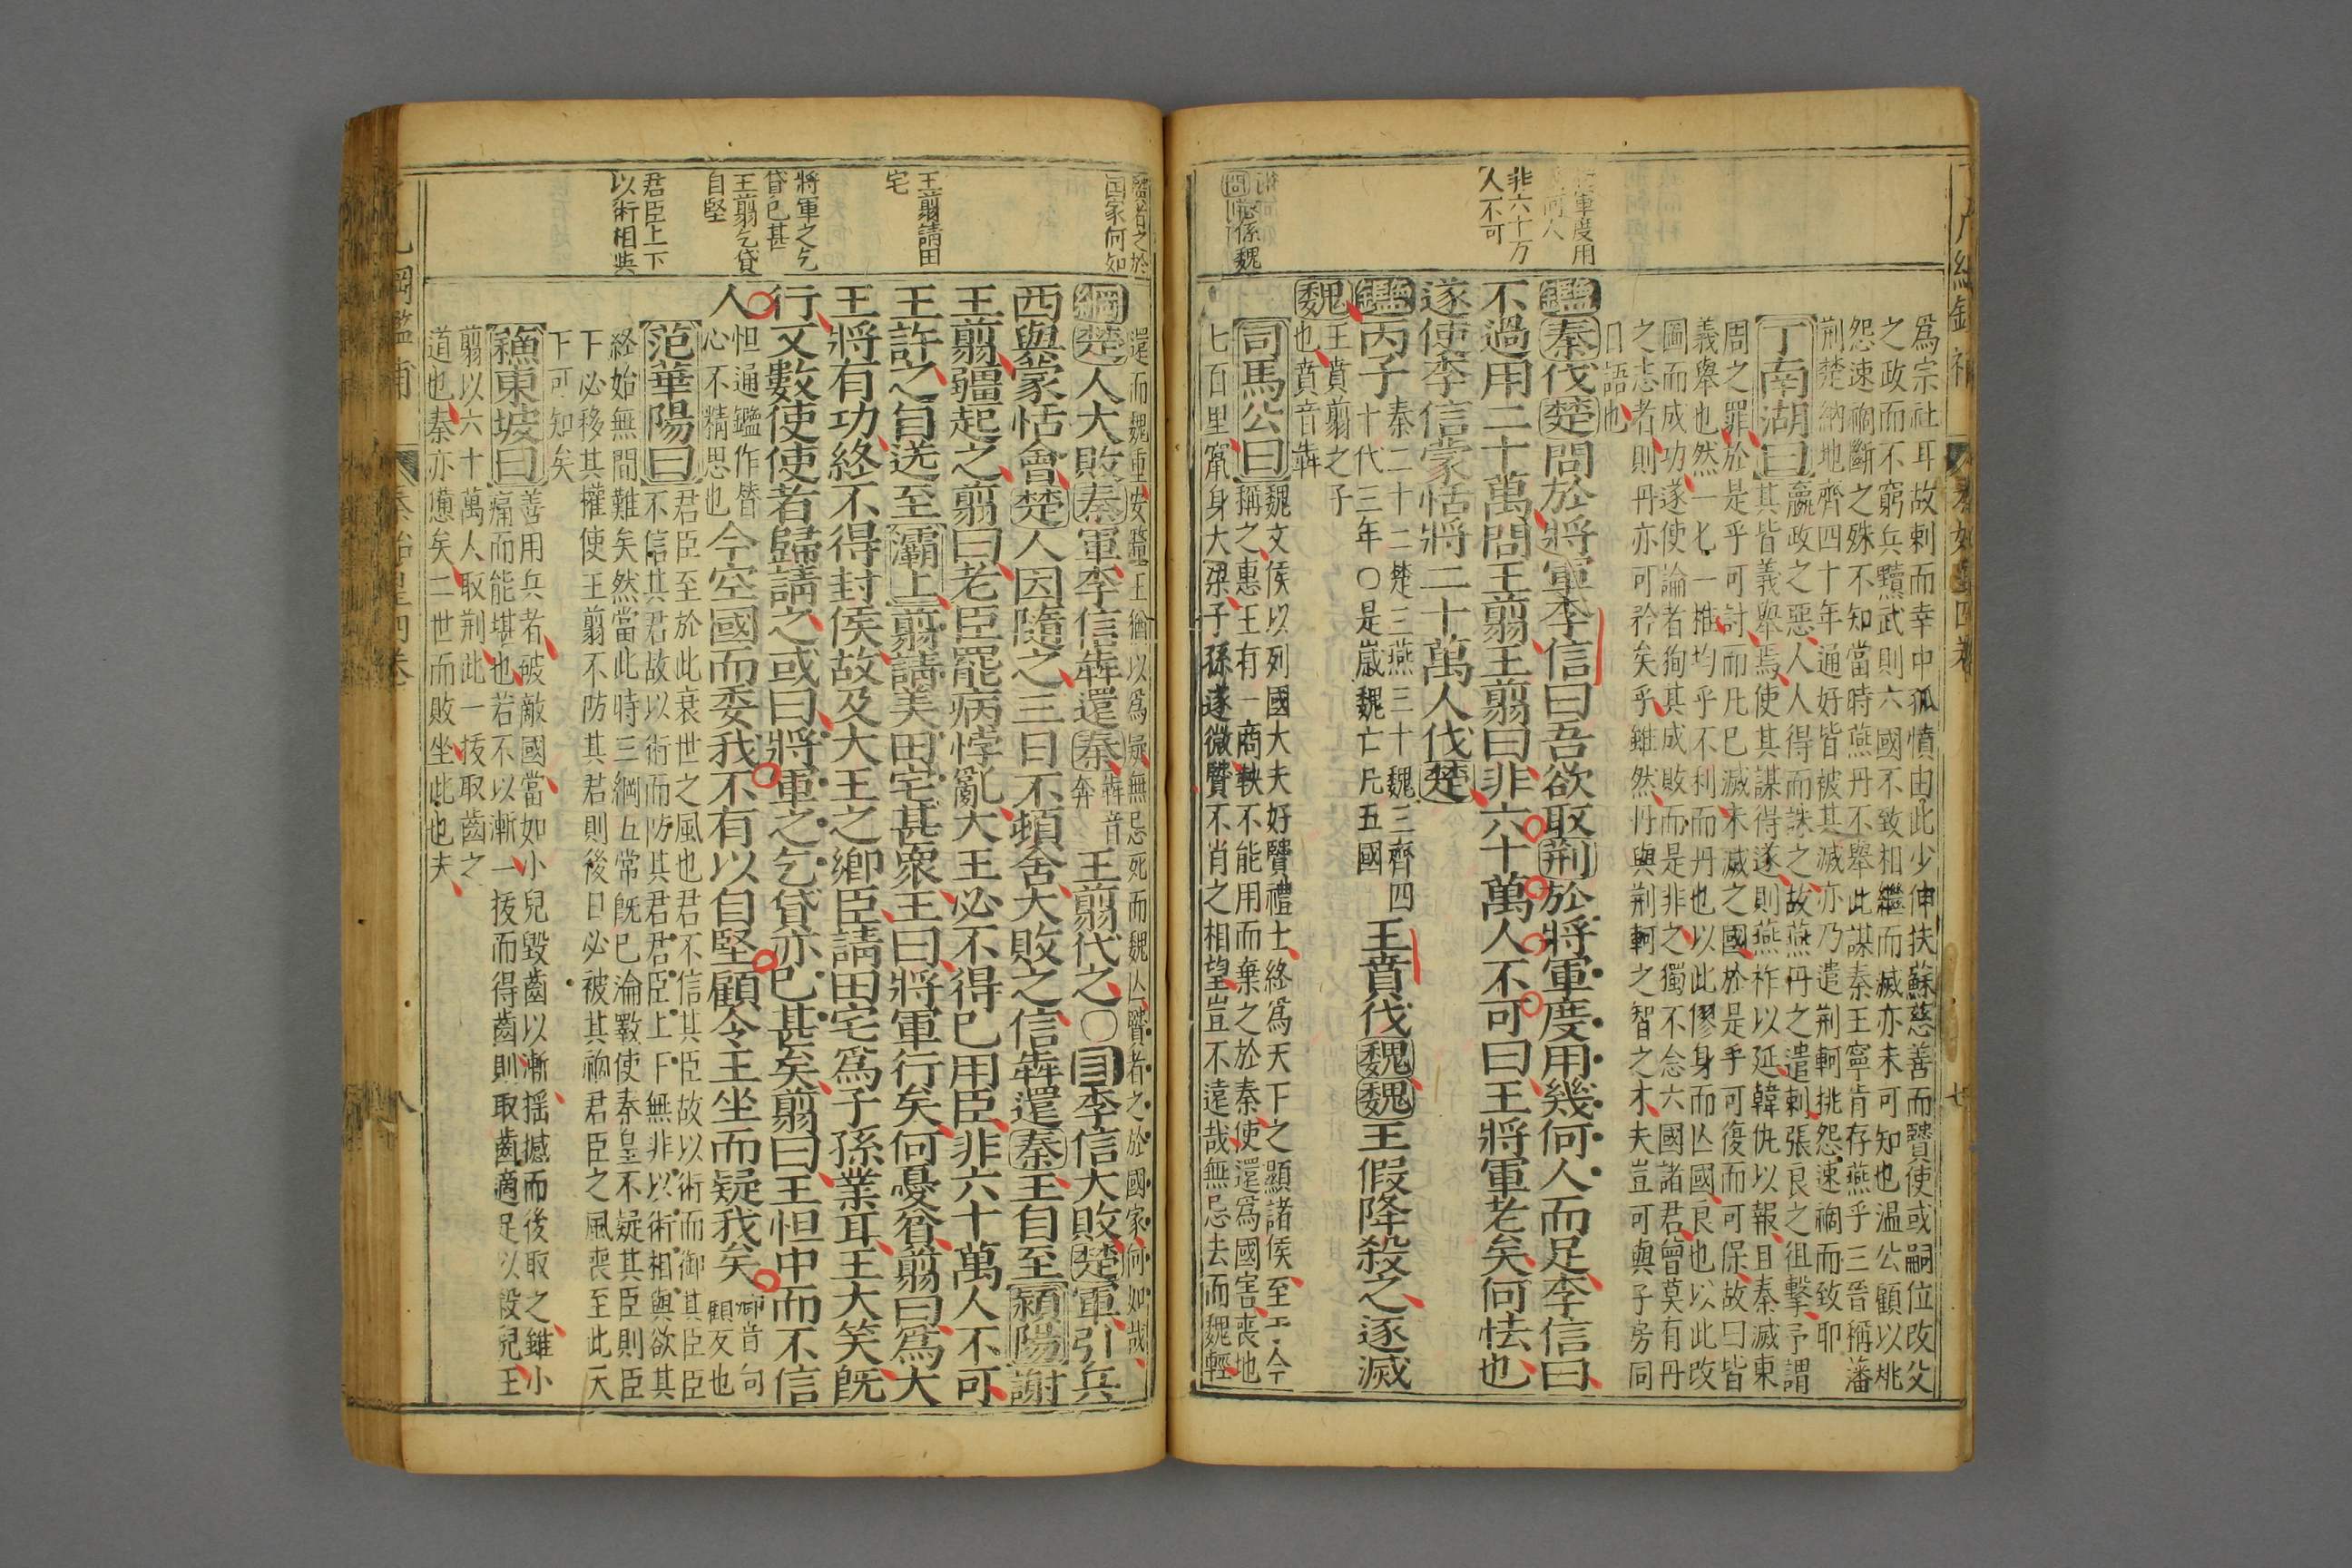 爲宗社耳故剌而幸中狐憤由此少伸扶蘇慈善而賢使或嗣位攺父
之政而不窮兵黷武則六國不致相繼而滅亦未可知也温公顧以挑
怨速禍斷之殊不知當時燕丹不舉此謀秦王寧肯存燕乎三晉稱藩
荆楚納地齊四十年通好皆被其滅亦乃遣荆軻挑怨速禍而致耶
丁南湖曰嬴政之惡人人得而誅之故燕丹之遣剌張良之徂擊予謂
其皆義舉焉使其謀得遂則燕祚以延韓仇以報且秦滅東
周之罪於是乎可討而凡已滅未滅之國於是乎可復而可保故曰皆
義舉也然一七一推均乎不利而丹也以此僇身而亾國良也以此攺
圖而成功遂使論者狥其成敗而是非之獨不念六國諸君曾莫有丹
之志者則丹亦可矜矣乎雖然丹與荆軻之智之才夫豈可與子房同
日語也
鑑秦伐楚問於將軍李信曰吾欲取荆於將軍度用幾何人而足李信曰
不過用二十萬問王翦王翦曰非六十萬人不可曰王將軍老矣何怯也
遂使李信蒙恬將二十萬人伐楚
鑑丙子秦二十二楚三燕三十魏三齊四
十代三年○是歲魏亡凡五國
王賁伐魏魏王假降殺之遂滅
魏王賁翦之子
也賁音犇
司馬公曰魏文侯以列國大夫好賢禮士終爲天下之顯諸侯至王令
稱之惠王有一商鞅不能用而棄之於秦使還爲國害喪地
七百里竄身大梁子孫遂微賢不肖之相望豈不遠哉無忌去而魏輕
軍度用
何人
非六十万
人不可
魏
還而魏重安釐王猶以爲疑無忌死而魏亾賢者之於國家何如哉
綱楚人大敗秦軍李信犇還秦犇音
奔
王翦代之○目李信大敗楚軍引兵
西與蒙恬會楚人因隨之三日不頓舍大敗之信犇還秦王自至潁陽謝
王翦彊起之翦曰老臣罷病悖亂大王必不得已用臣非六十萬人不可
王許之自送至灞上翦請美田宅甚衆王曰將軍行矣何憂貧翦曰爲大
王將有功終不得封侯故及大王之鄉臣請田宅爲子孫業耳王大笑旣
行又數使使者歸請之或曰將軍之乞貸亦已甚矣翦曰王怚中而不信
人怚通鑑作
心不精思也
今空國而委我不有以自堅顧令王坐而疑我矣
范華陽曰君臣至於此衰世之風也君不信其臣故以術而御其臣臣
不信其君故以術而防其君君臣上下無非以術相與欲其
終始無間難矣然當此時三綱五常旣已淪斁使秦皇不疑其臣則臣
下必移其權使王翦不防其君則後日必被其禍君臣之風喪至此天
下可知矣
蘇東坡曰善用兵者破敵國當如小兒毀齒以漸揺撼而後取之雖小
痛而能堪也若不以漸一拔而得齒則取齒適足以殺兒王
翦以六十萬人取荆此一拔取齒之
道也秦亦憊矣二世而敗坐此也夫
賢者之於
國家何如
王翦請田
宅
將軍之乞
貸已甚
王翦乞貸
自堅
君臣上下
以術相與